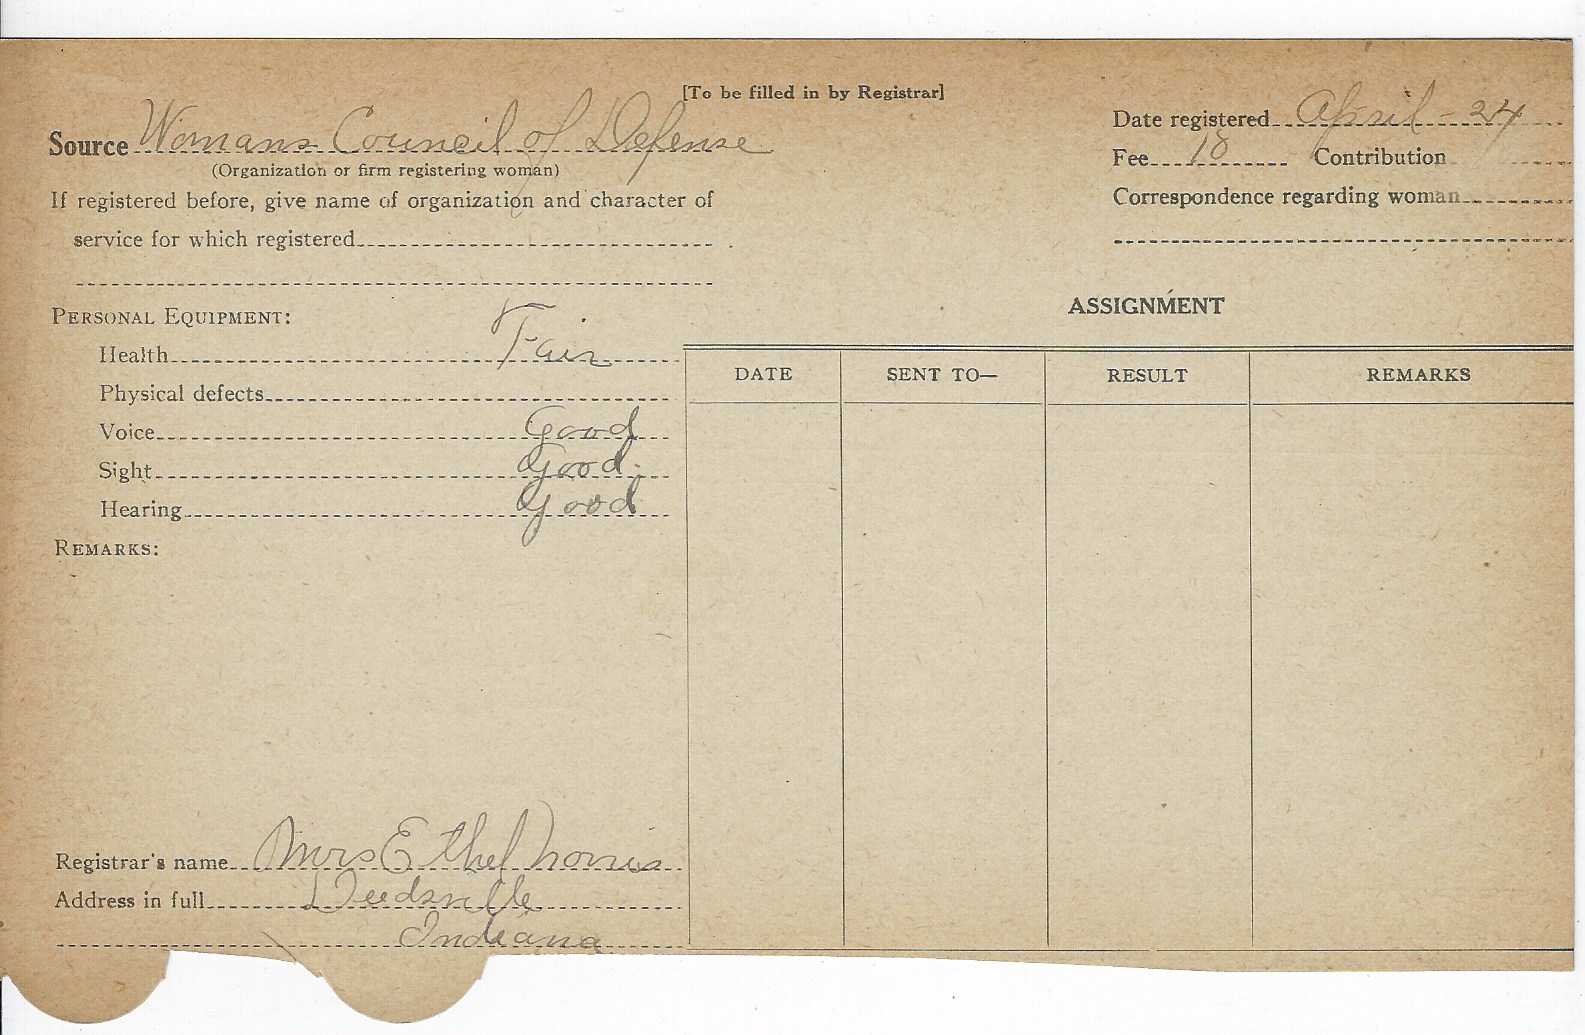 [To be filled in by Registrar]
Source Womans Council of Defense
(Organization or firm registering woman)
If registered before, give name of organization and character of
service for which registered
Date registered April - 24
Fee 18 Contribution
Correspondence regarding woman
PERSONAL EQUIPMENT:
Health Fair
Physical defects
Voice Good
Sight Good
Hearing Good
REMARKS:
ASSIGNMENT
DATE SENT TO— RESULT REMARKS
Registrar's name Mrs Ethel Norris
Address in full Deedsville
Indiana